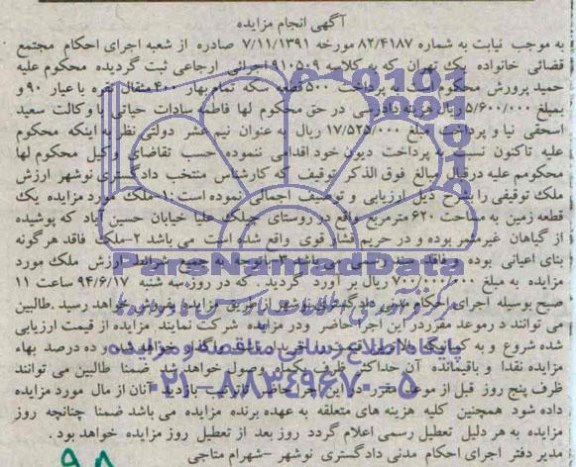 آگهی انجام مزایده
به موجب نیابت به شماره ۸۲/۴۱۸۷ مورخه ۷/۱۱/۱۳۹۱ صادره از شعبه اجرای احکام مجتمع
قضائی خانواده یک تهران که به کلاسه ۹۱۰۵۰۹ اجرائی ارجاعی ثبت گردیده محکوم علیه
حمید پرورش محکوم است به پرداخت ۵۰۰ قطعه سکه تمام بهار ۴۰۰ مثقال نقره با عیار ۹۰ و
مبلغ ۵/۶۰۰/۰۰۰ ریال هزینه دادرسی در حق محکوم لها فاطمه سادات حیاتی با وکالت سعید
اسحقی نیا و پرداخت مبلغ ۱۷/۵۲۵/۰۰۰ ریال به عنوان نیم عشر دولتی نظر به اینکه محکوم
علیه تاکنون نسبت به پرداخت دیون خود اقدامی ننموده حسب تقاضای وکیل محکوم لها
محکومم علیه در قبال مبالغ فوق الذکر توقیف که کارشناس منتخب دادگستری نوشهر ارزش
ملک توقیفی را بشرح ذیل ارزیابی و توصیف اجمالی نموده است ۱- ملک مورد مزایده یک
قطعه زمین به مساحت ۶۲۰ مترمربع واقع در روستای چلک علیا خیابان حسین آباد که پوشیده
از گیاهان غیرمثمر بوده و در حریم فشار قوی واقع شده است می باشد ۲-ملک فاقد هرگونه
بنای اعیانی بوده و فاقد سند رسمی می باشد ۳-باتوجه به جمیع شرایط ارزش ملک مورد
مزایده به مبلغ ۷۰۰/۰۰۰/۰۰۰ ریال بر آورد گردید. که در روزه سه شنبه ۹۴/۶/۱۷ ساعت ۱۱
صبح بوسیله اجرای احکام مدنی دادگستری نوشهر از طریق مزایده بفروش خواهد رسید .طالبین
می توانند در موعد مقرر در این اجرا حاضر ودر مزایده شرکت نمایند مزایده از قیمت ارزیابی
شده شروع و به کسانیکه بالاترین قیمت را خریدار باشند واگذار خواهد شد. ده درصد بهاء
مزایده نقدا و باقیمانده آن حداکثر ظرف یکماه وصول خواهد شد ضمنا طالبین می توانند
ظرف پنج روز قبل از موعد مقرر در این اجرا حاضر تا ترتیب بازدید آنان از مال مورد مزایده
داده شود همچنین کلیه هزینه های متعلقه به عهده برنده مزایده می باشد ضمنا چنانچه روز
مزایده به هر دلیل تعطیل رسمی اعلام گردد روز بعد از تعطیل روز مزایده خواهد بود .
مدیر دفتر اجرای احکام مدنی دادگستری نوشهر -شهرام متاجی
ParsNamadData
پایگاه اطلاع رسانی مناقصه و مزایده
۰۲۱-۸۸۳۴۹۶۷۰-۵